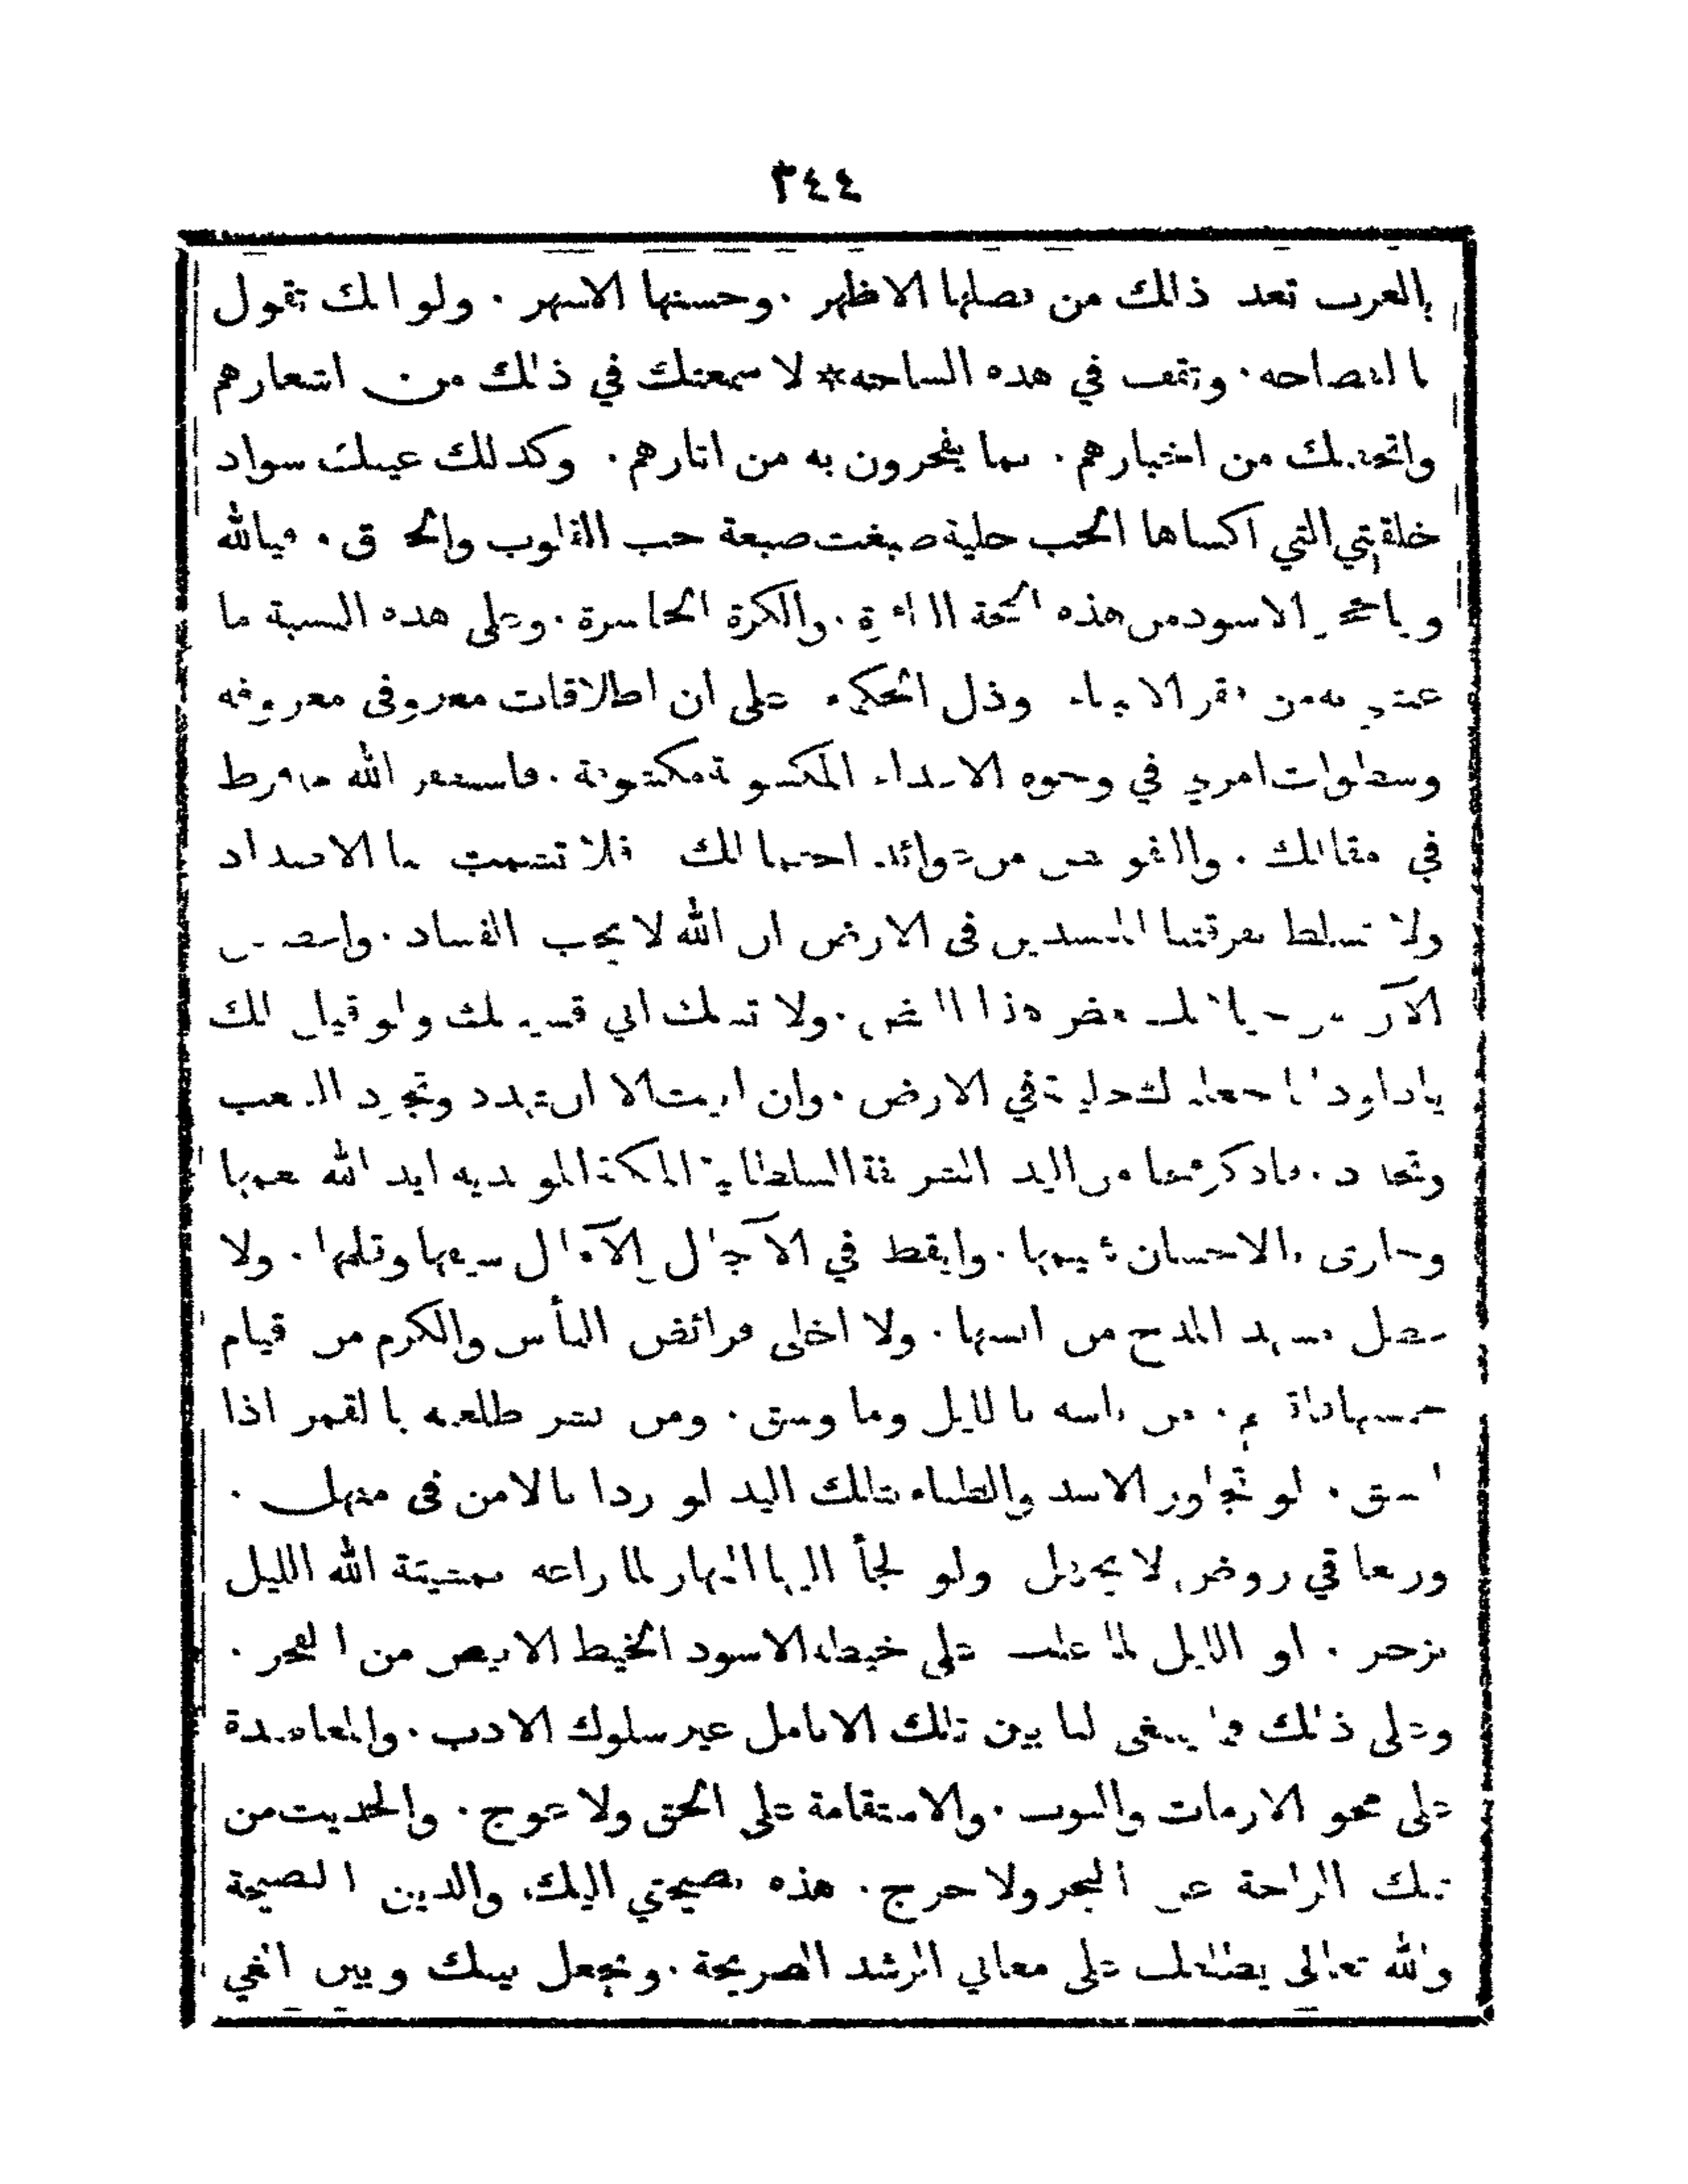 ٣٤٤
بالعرب تعد ذلك من فصلها الاظهر ٠ وحسنها الاشهر ٠ ولو انك تقول
بالفصاحه ٠ وتقف في هذه الساحه * لا سمعتك في ذلك من اشعارهم
واتحفتك من اخبارهم ٠ بما يفخرون به من اثارهم ٠ وكذلك عيبك سواد
خلقتي التي اكساها الحب حلية صبغت صبغة حب القلوب والحدق ٠ فيالله
وياللحجر الاسود من هذه ٠ والكرة الخاسرة ٠ وعلى هذه النسبة ما
عنتي به من فقر الانبياء وذل الحكماء على ان اطلاقات معروفى معروفه
وسطوات امري في وجوه الاعداء المكسوفة مكشوفة ٠ فاستغفر الله مما فرط
في مقالك ٠ والتفويض من عوائد احتمالك فلا تشمت بنا الاضداد
ولا تسلط بفرقتنا المفسدين فى الارض ان الله لا يحب الفساد ٠
الآن هذا ٠ ولا ولو قيل لك
ياداود انا جعلناك خليفة في الارض ٠ وان ابيت الا ان تهدد وتجرد الشعب
وتحدد ٠ فاذكر محلنا من اليد الشريفة السلطانية الملكية المؤيديه ايد الله نعمها
وجازى بالاحسان شيمها ٠ وايقظ في الآجال والآمال سيفها وقلمها ٠ ولا
عطل مشاهد المدح من انسها ٠ ولا اخلى فرائض البأس والكرم من قيام
خمسها فاقسم ٠ من باسه بالليل وما وسق ٠ ومن بشر طلعته بالقمر اذا
اتسق ٠ لو تجاور الاسد والظباء بتلك اليد لو ردا بالامن فى منهل ٠
ورتعا في روض لا يجهل ولو لجأ اليها النهار لما راعه بمشيئة الله الليل
بزجر ٠ او الليل لما غلب على خيطه الاسود الخيط الابيض من الفجر ٠
وعلى ذلك فما ينبغى لنا بين تلك الانامل غير سلوك الادب ٠ والمعاضدة
على محو الازمات والنوب ٠ والاستقامة على الحق ولا عوج ٠ والحديث من
تلك الراحة عن البحر ولا حرج ٠ هذه نصيحتي اليك، والدين النصيحة
والله تعالى يطلعك على معاني الرشد الصريحة ٠ ويجعل بينك وبين الغي